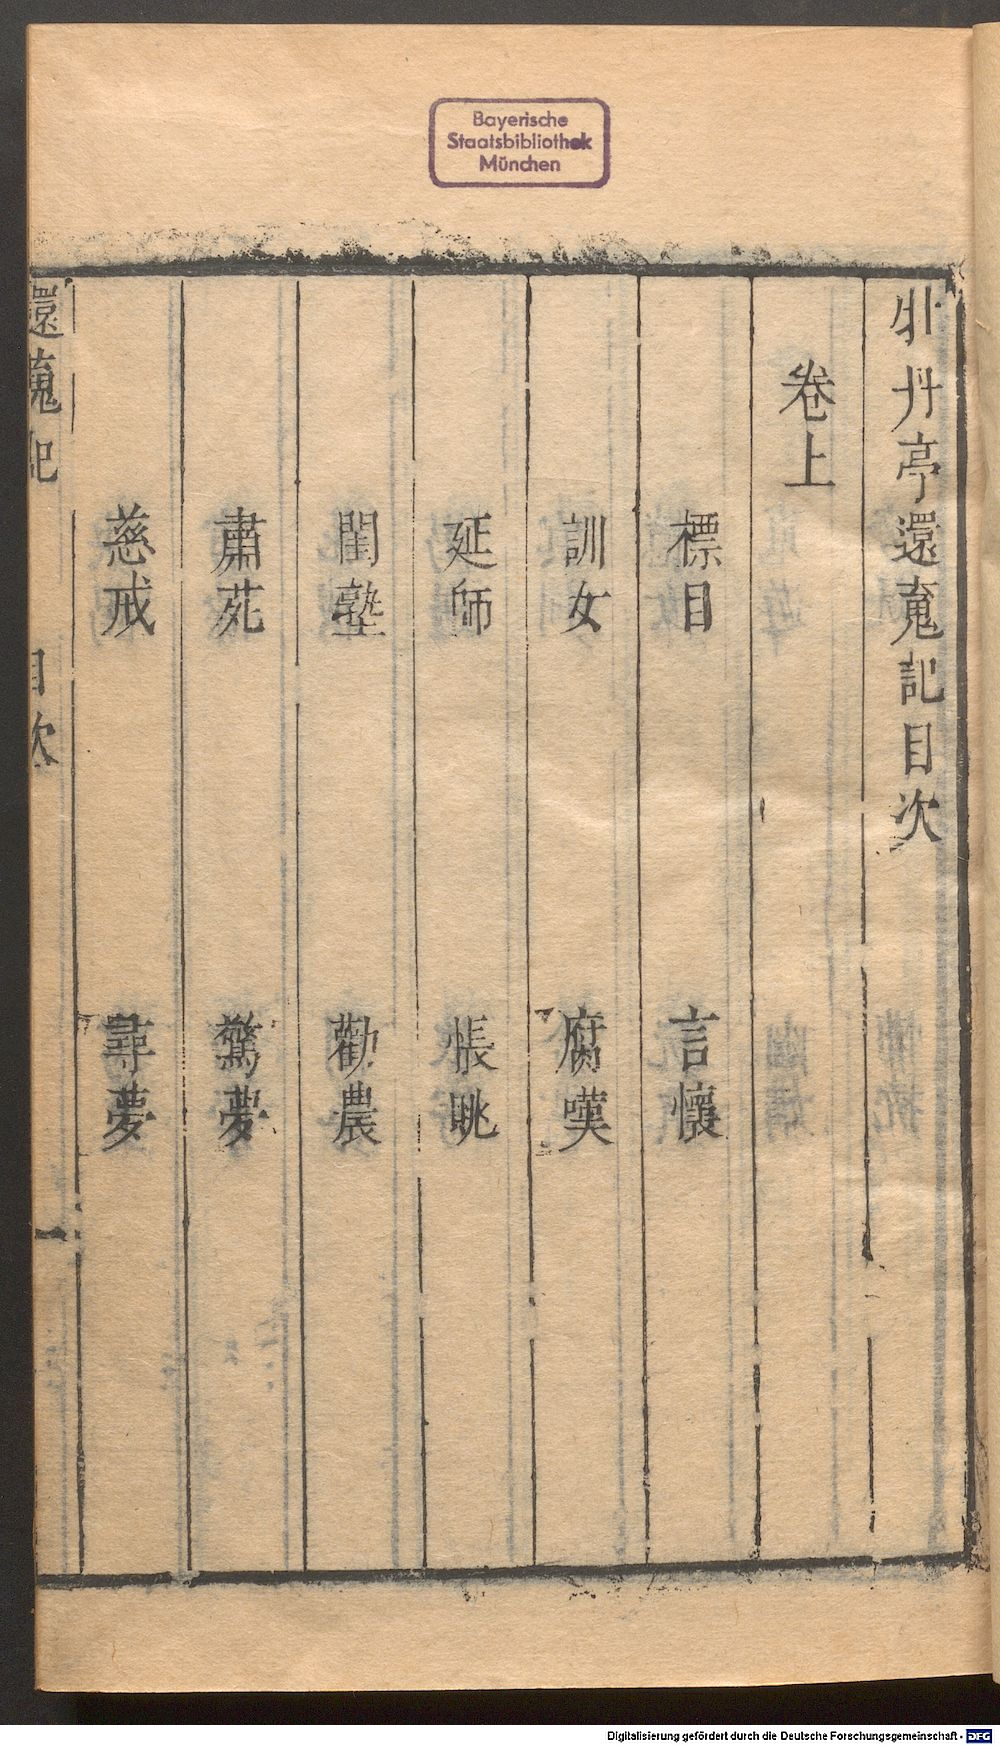 Bayerische
Staatsbibliothek
München
牡丹亭還魂記目次
卷上
標目　言懷
訓女　腐嘆
延師　悵眺
閨塾　勸農
肅苑　驚夢
慈戒　尋夢
還魂記　目次　一
Digitalisierung gefördert durch die Deutsche Forschungsgemeinschaft - DFG